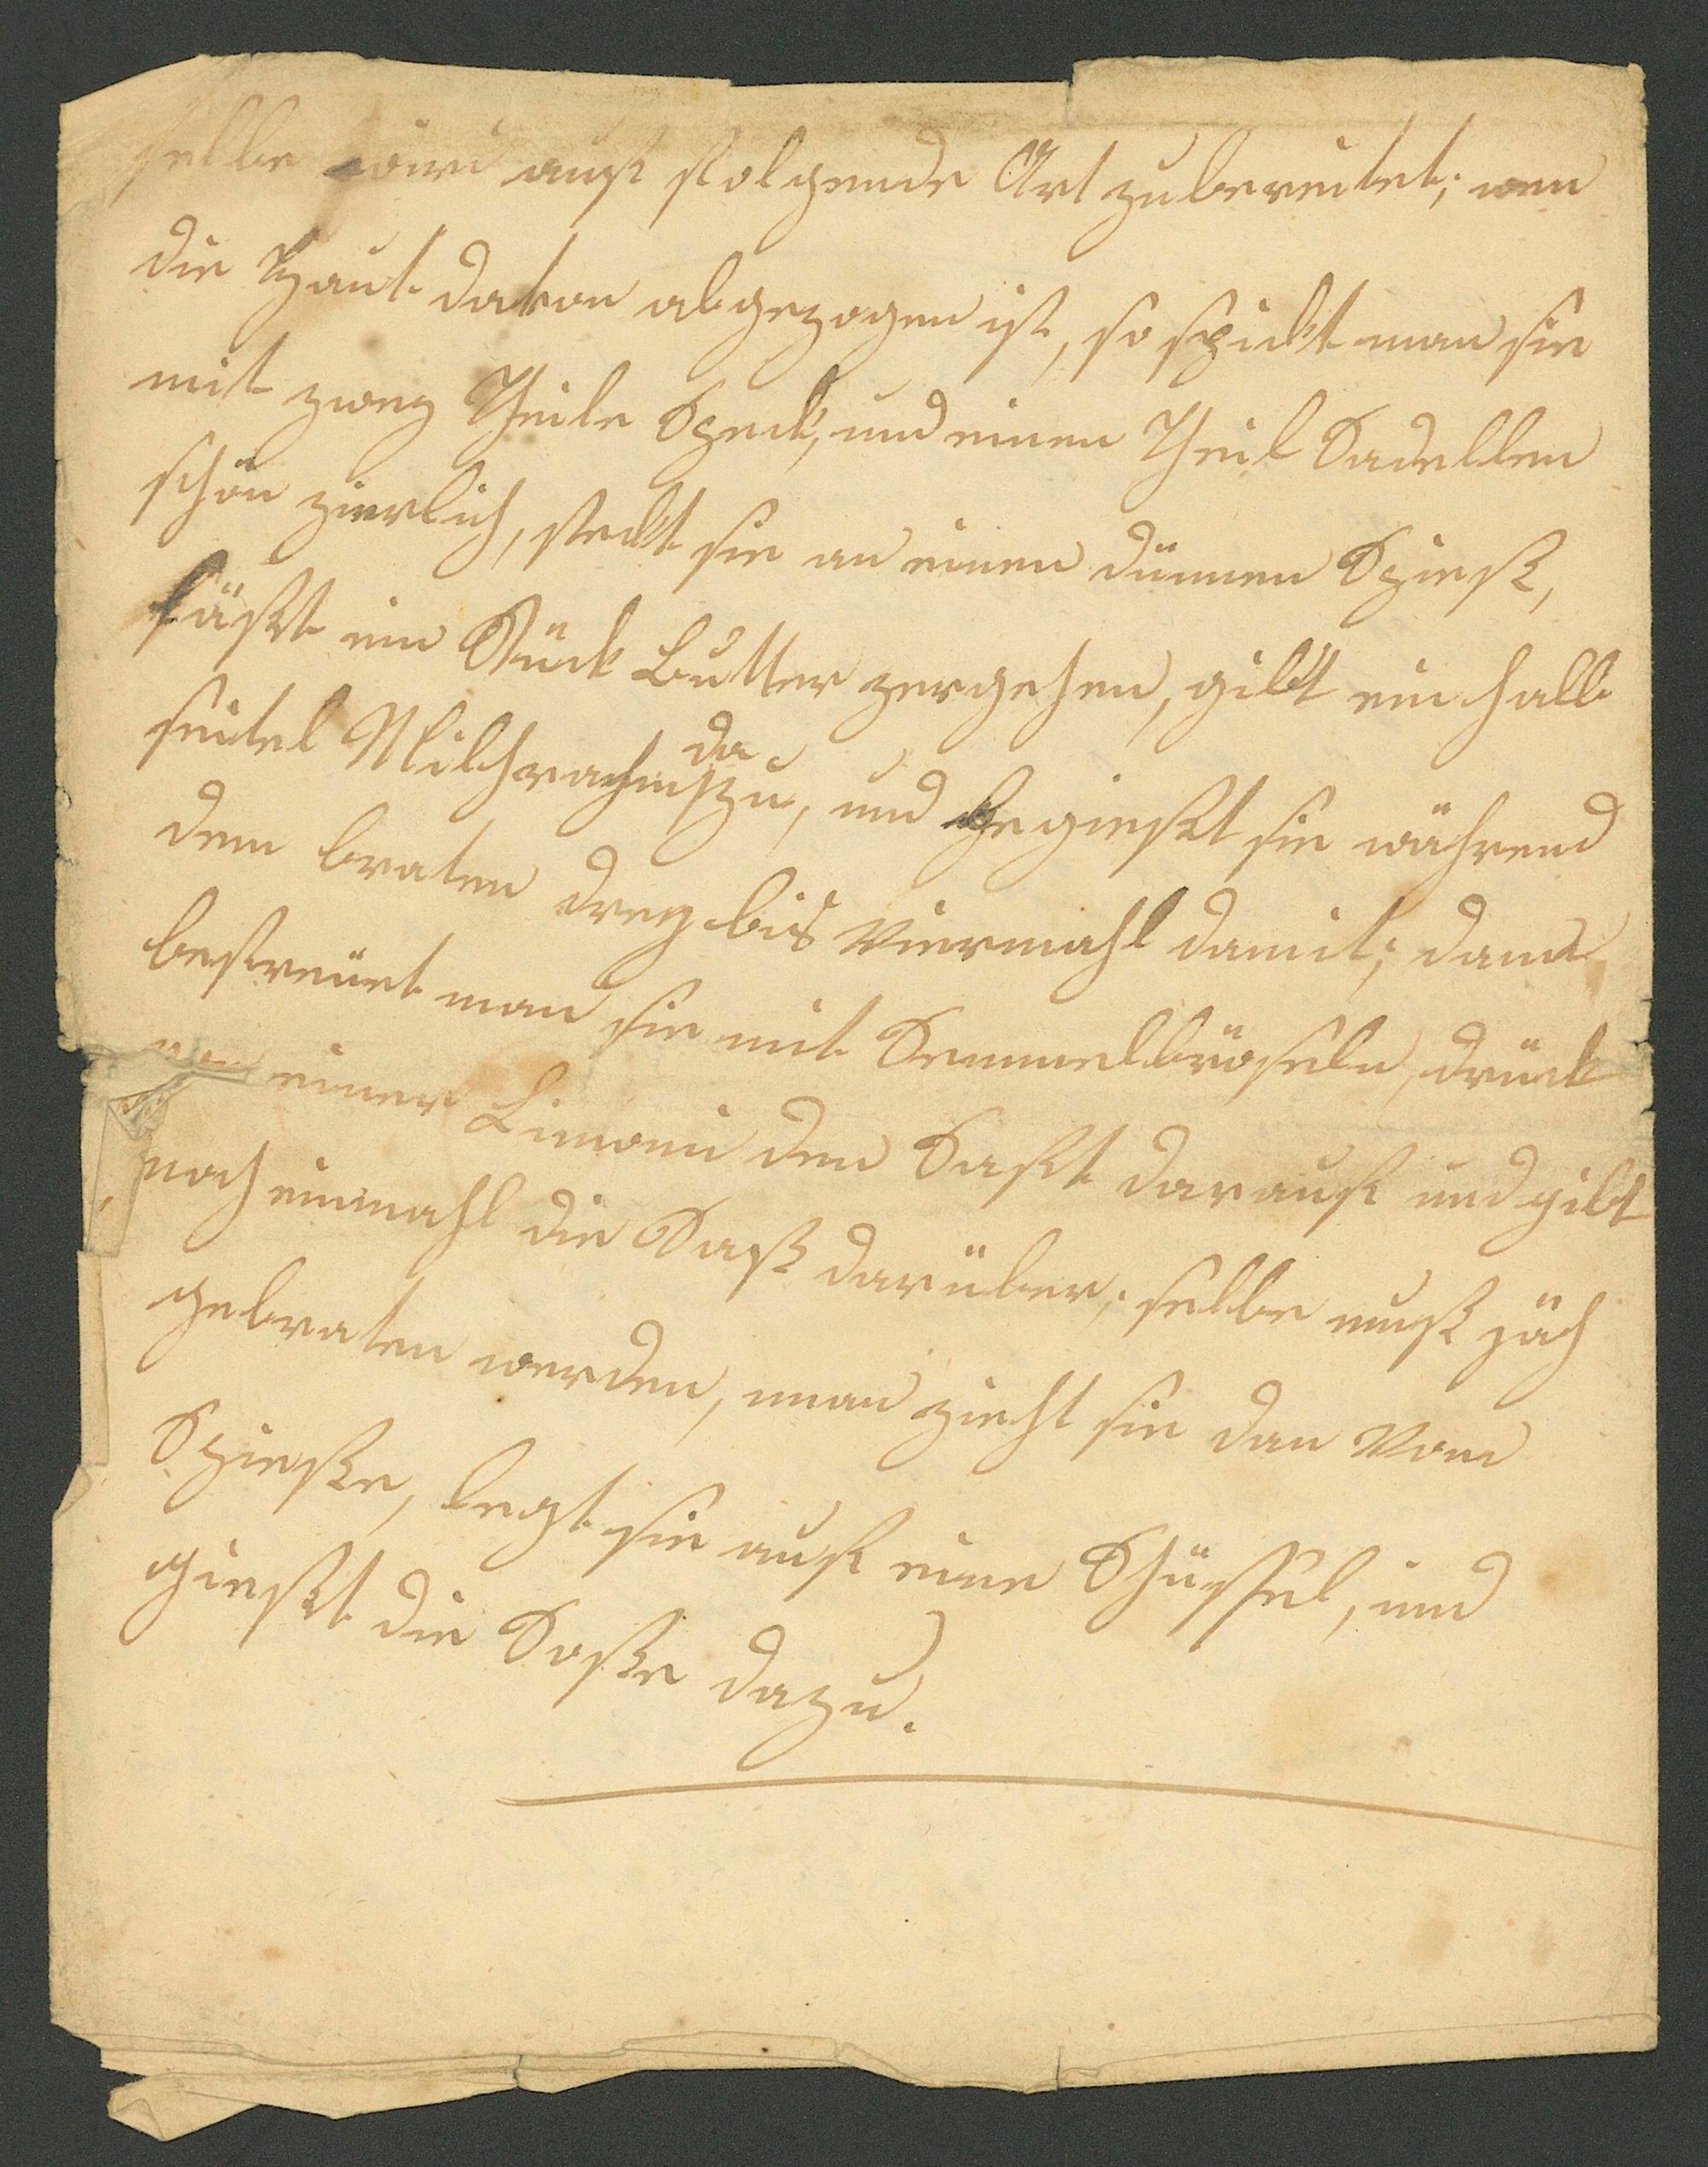 selbe wird auf folgende Art zubereitet; wen
die Haut davon abgezogen ist, so spickt man sie
mit zwey Theile Speck, und einen Theil Sadellen
schön zierlich, steckt sie an einen dünnen Spieß,
läßt ein Stück Butter zergehen, gibt ein halb
seitel Milchrahm dazu, und begießt sie während
dem braten drey bis viermahl damit; dann
bestreuet man sie mit Semmelbröseln, drück
von einer Limoni den Saft darauf und gibt
noch einmahl die Soß darüber; selbe muß gäh
gebraten werden, man zieht sie dan vom
Spieße, legt sie auf eine Schüssel, und
gießt die Soße dazu.